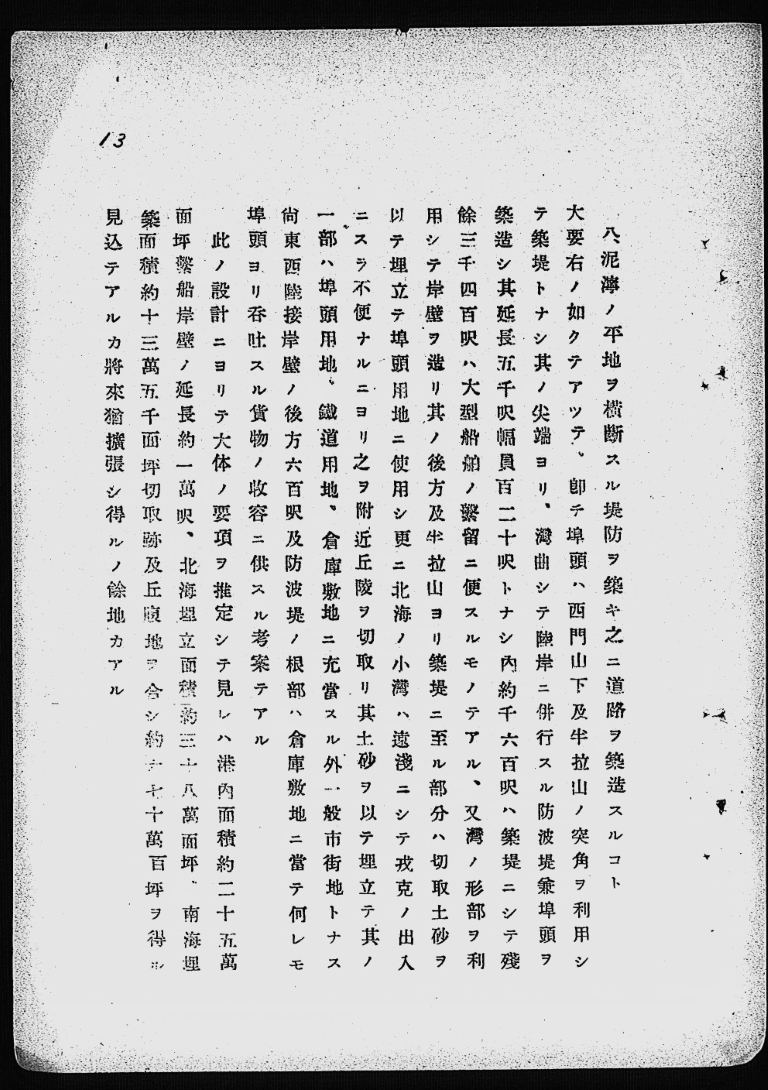 13
八、泥濘ノ平地ヲ横斷スル堤防ヲ築キ之ニ道路ヲ築造スルコト
大要右ノ如クテアツテ、卽チ埠頭ハ西門山下及半拉山ノ突角ヲ利用シ
テ築堤トナシ其ノ尖端ヨリ、灣曲シテ陸岸ニ併行スル防波堤兼埠頭ヲ
築造シ其延長五千呎幅員百二十呎トナシ內約千六百呎ハ築堤ニシテ殘
餘三千四百呎ハ大型船舶ノ繫留ニ便スルモノテアル、又灣ノ形部ヲ利
用シテ岸壁ヲ造リ其ノ後方及半拉山ヨリ築堤ニ至ル部分ハ切取土砂ヲ
以テ埋立テ埠頭用地ニ使用シ更ニ北海ノ小灣ハ遠淺ニシテ戎克ノ出入
ニスラ不便ナルニヨリ之ヲ附近丘陵ヲ切取リ其土砂ヲ以テ埋立テ其ノ
一部ハ埠頭用地、鐵道用地、倉庫敷地ニ充當スル外一般市街地トナス
尙東西陸接岸壁ノ後方六百呎及防波堤ノ根部ハ倉庫敷地ニ當テ何レモ
埠頭ヨリ吞吐スル貨物ノ收容ニ供スル考案テアル
此ノ設計ニヨリテ大体ノ要項ヲ推定シテ見レハ港內面積約二十五萬
面坪繫船岸壁ノ延長約一萬呎、北海埋立面積約三十八萬面坪、南海埋
築面積約十三萬五千面坪切取跡及丘陵地ヲ合シ約 七十萬百坪ヲ得ル
見込テアルカ將來猶擴張シ得ルノ餘地カアル